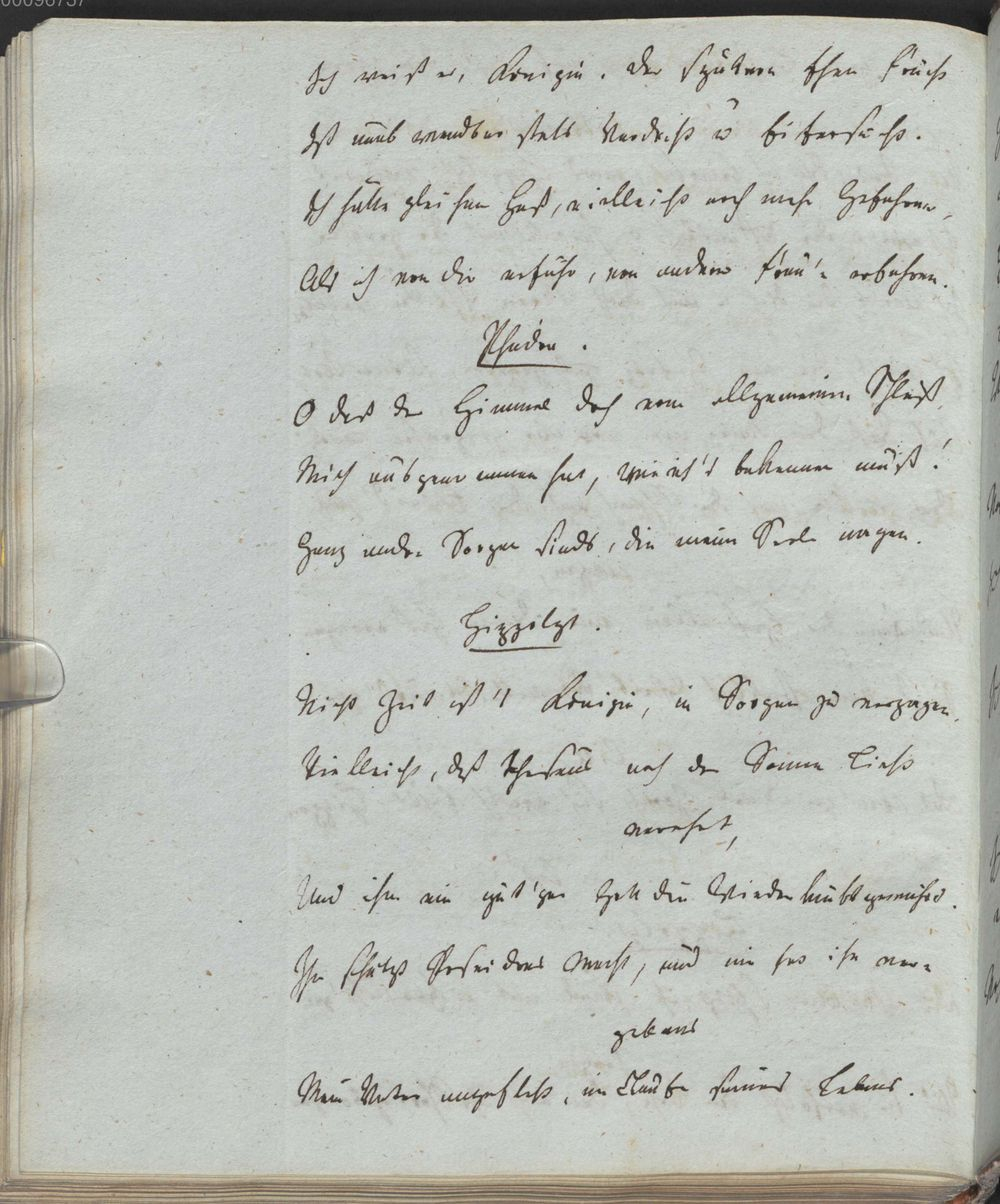 00096737
Ich weiß es, Königin. Der spätern Ehen Frucht
Ist unabwendbar stets Verdacht u Eifersucht.
Ich hätte gleichen Haß, vielleicht noch mehr Gefahren,
Als ich von dir erfuhr, von andern Frau'n erfahren.
Phädra.
O daß der Himmel doch vom allgemeinen Schluß
Mich ausgenommen hat, wie ich's bekennen muß!
Ganz andre Sorgen sinds, die meine Seele nagen.
Hippolyt.
Nicht Zeit ist's Königin, in Sorgen zu verzagen.
Vielleicht, daß Theseus noch der Sonne Licht
verehrt,
Und ihm ein güt'ger Gott die Wiederkunft gewährt.
Ihn schützt Poseidons Macht, und nie hat ihn ver-
gebens
Mein Vater angefleht, im Laufe seines Lebens.